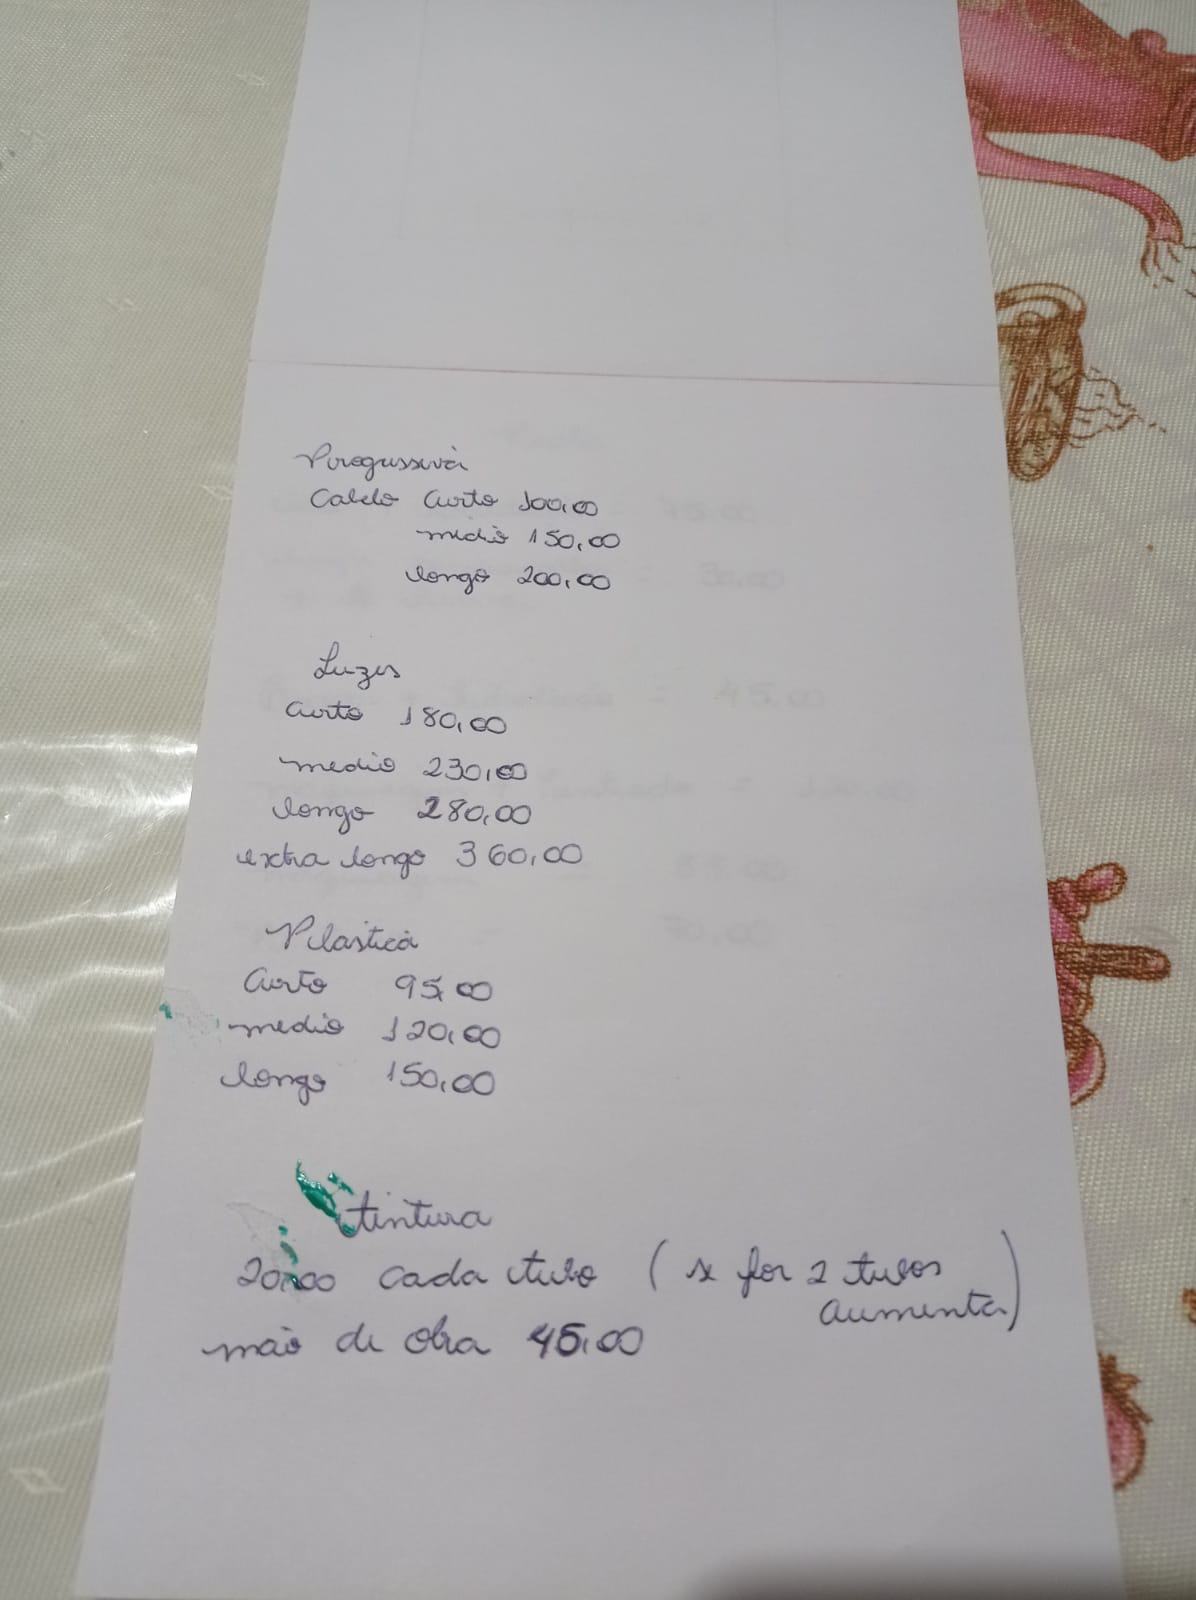 Progressiva
Cabelo Curto 100,00
médio 150,00
longo 200,00
Luzes
Curto 180,00
medio 230,00
longo 280,00
extra longo 360,00
Plastica
Curto 95,00
medio 120,00
longo 150,00
tintura
20,00 cada tubo ( se for 2 tubos
aumenta)
mão de obra 45,00